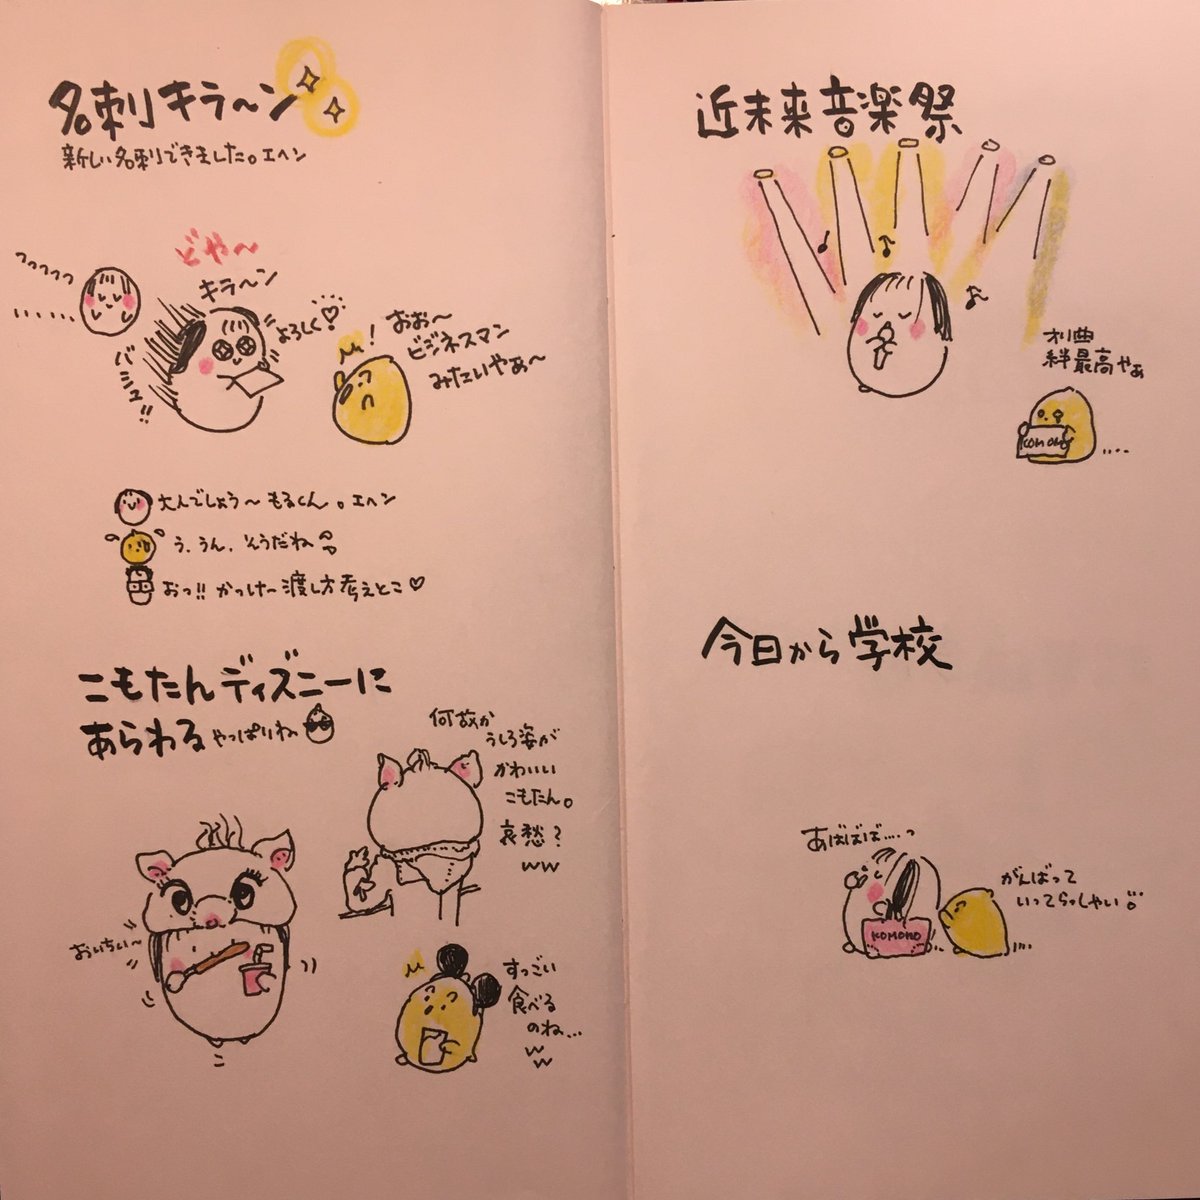 名刺キラ〜ン
新しい名刺できました。エヘン
どや〜
キラ〜ン
よろしく♡
バシュ!!
おお〜
ビジネスマン
みたいやぁ〜
大人でしょう〜もるくん。エヘン
う、うん、そうだね
おっ!!かっけ〜渡し方考えとこ♡
こもたんディズニーに
あらわる やっぱりね
何故か
うしろ姿が
かわいい
こもたん。
哀愁?
ww
おいちい〜
すっごい
食べる
のね...
ww
近未来音楽祭
オリ曲
絆最高やぁ
KOMOMO
今日から学校
あばばば....っ
がんばって
いってらっしゃい
KOMOMO